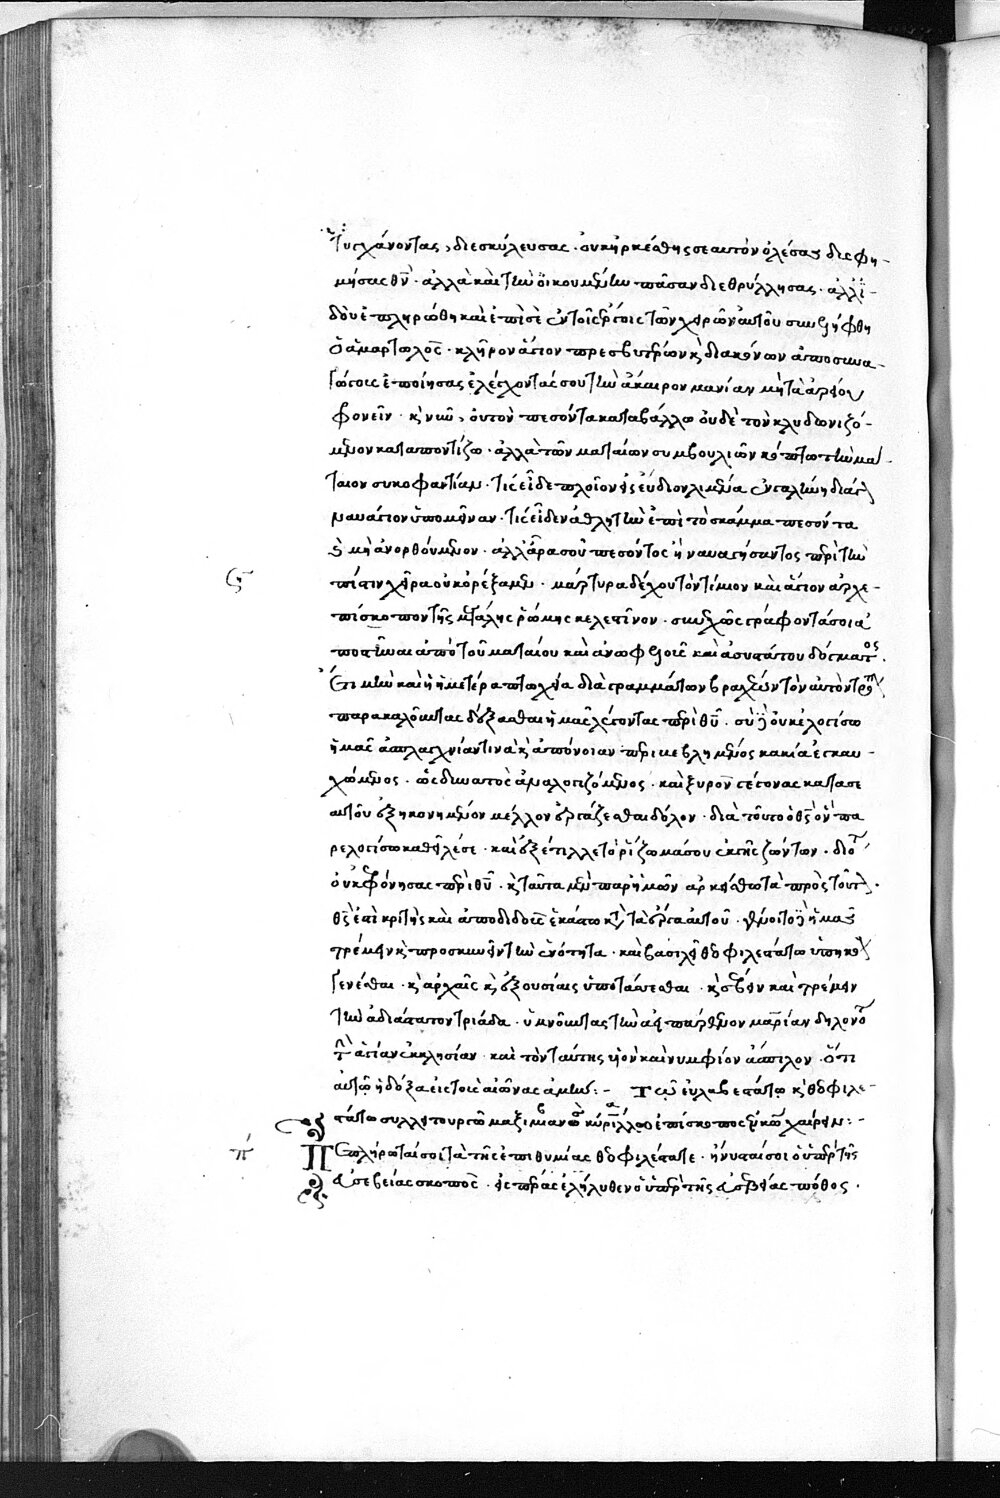 τυγχάνοντας, διεσκύλευσας. οὐκ ἠρκέσθης σεαυτὸν ὀλέσαι διεφη-
μήσας θν̄. ἀλλὰ καὶ τὴν οἰκουμένην πᾶσαν διεθρύλλησας. ἀλλ' ἰ-
δοὺ ἐπληρώθη καὶ ἐπὶ σὲ ἐν τοῖς ἔργοις τῶν χειρῶν αὐτοῦ συνελήφθη
ὁ ἁμαρτωλός. κλῆρον ἅγιον πρεσβυτέρων κ διακόνων ἀποσυνα-
γώγους ἐποίησας ἐλέγχοντάς σου τὴν ἄκαιρον μανίαν μὴ τὰ ἀρείου
φρονεῖν. κ νῦν, οὐ τὸν πεσόντα καταβάλλω οὐδὲ τὸν κλυδωνιζό-
μενον καταποντίζω. ἀλλὰ τῶν ματαίων συμβουλιῶν κόπτω τὴν μα-
ταιον συκοφαντίαν. τίς εἶδε πλοῖον εἰς εὔδιον λιμένα
ναυάγιον ὑπομεῖναν. τίς εἶδεν ἀθλητὴν ἐπὶ τὸ σκάμμα πεσόντα
κ μὴ ἀνορθούμενον. ἀλλ' ἆρα σοῦ πεσόντος ἢ ναυαγήσαντος περὶ τὴν
ϛ πίστιν χεῖρα οὐκ ὀρέξαμεν. μάρτυρα δέχου τὸν τίμιον καὶ ἅγιον ἀρχιε-
πίσκοπον τῆς μεγάλης ῥώμης κελεστῖνον. συνεχῶς γράφοντά σοι ἀ-
ποστῆναι ἀπὸ τοῦ ματαίου καὶ ἀνωφελοῦς καὶ ἀσυστάτου δόγματος.
ἔτι μὴν καὶ ἡ ἡμετέρα πτωχεία διὰ γραμμάτων βραχέων τὸν αὐτὸν τρόπον
παρακαλοῦντας δόξασθαι ἡμᾶς λέγοντας περὶ θῡ. σὺ γὰρ οὐκ ἐλογίσω
ἡμᾶς ἀσπλαγχνίαν τινὰ κ ἀπόνοιαν περικεβλημένος κακία ἐγκαυ-
χώμενος. ὡς δυνατὸς ἀναλογιζόμενος. καὶ ξυρὸν γέγονας κατὰ σε-
αυτοῦ ἐξηκονημένον μέλλον ἐργάζεσθαι δόλον. διὰ τοῦτο ὁ θς̄ ὃν πα-
ρελογίσω καθεῖλέ σε. καὶ ἐξέτιλλε τὸ ῥίζωμά σου ἐκ γῆς ζώντων. διότι
οὐκ ἐφρόνησας περὶ θῡ. κ ταῦτα μὲν παρ' ἡμῶν ἀρκείσθω τὰ πρὸς τοῦτον.
θς̄ ἐστὶ κριτὴς καὶ ἀποδιδοὺς ἑκάστω κατὰ τὰ ἔργα αὐτοῦ. γένοιτο γὰρ ἡμᾶς
τρέμειν κ προσκυνεῖν τὴν ἑνότητα. καὶ βασιλεῖ θεοφιλεστάτω ὑπηκόους
γενέσθαι. κ ἀρχαῖς κ ἐξουσίαις ὑποτάσσεσθαι. κ σέβειν καὶ τρέμειν
τὴν ἀδιάστατον τριάδα. ὑμνοῦντας τὴν ἀειπάρθενον μαρίαν δηλονότι
τὴν ἁγίαν ἐκκλησίαν. καὶ τὸν ταύτης υἱὸν καὶ νυμφίον ἄσπιλον. ὅτι
αὐτῶ ἡ δόξα εἰς τοὺς αἰῶνας ἀμήν:- Τῶ εὐλαβεστάτω κ θεοφιλε-
στάτω συλλειτουργῶ μαξιμιανῶ κύριλλος ἐπίσκοπος ἐν κω̄ χαίρειν:-
π Πεπλήρωταί σοι τὰ τῆς ἐπιθυμίας θεοφιλέστατε. ἤνυσταί σοι ὁ ὑπὲρ τῆς
εὐσεβείας σκοπός. εἰς πέρας ἐλήλυθεν ὁ ὑπὲρ τῆς εὐσεβείας πόθος.